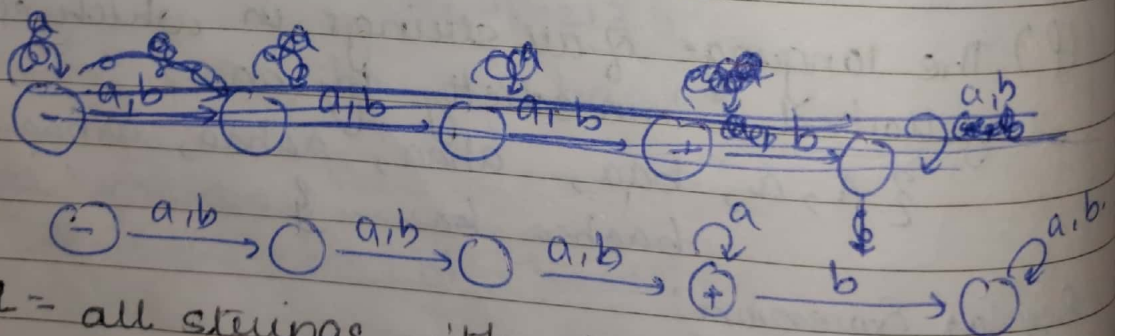 a,b a,b a,b b a,b
- +
a,b a,b a,b a b a,b.
- +
L = all strings